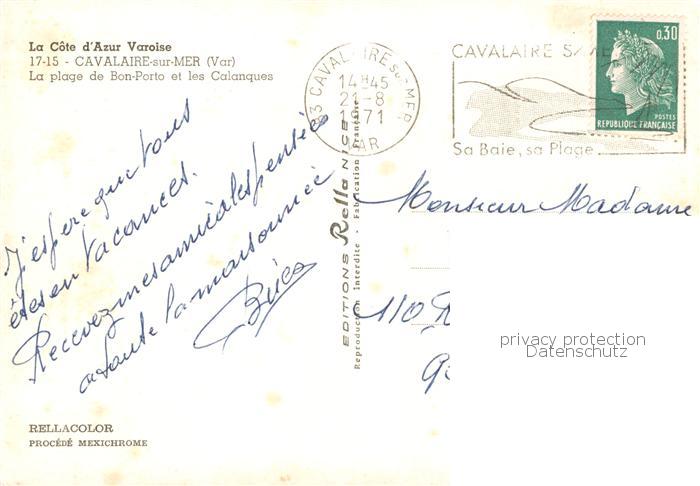 La Côte d'Azur Varoise
17-15 - CAVALAIRE-sur-MER (Var)
La plage de Bon-Porto et les Calanques
J'espère que vous
êtes en vacances.
Recevez mes amicales pensées
a toute la maisonnée
RELLACOLOR
PROCÉDÉ MEXICHROME
EDITIONS Rella NICE
Reproduction Interdite - Fabrication Française
83 CAVALAIRE sur MER
14H45
21-8
1971
VAR
CAVALAIRE S/MER
Sa Baie, sa Plage
0,30
POSTES
REPUBLIQUE FRANÇAISE
Monsieur Madame
110
privacy protection
Datenschutz